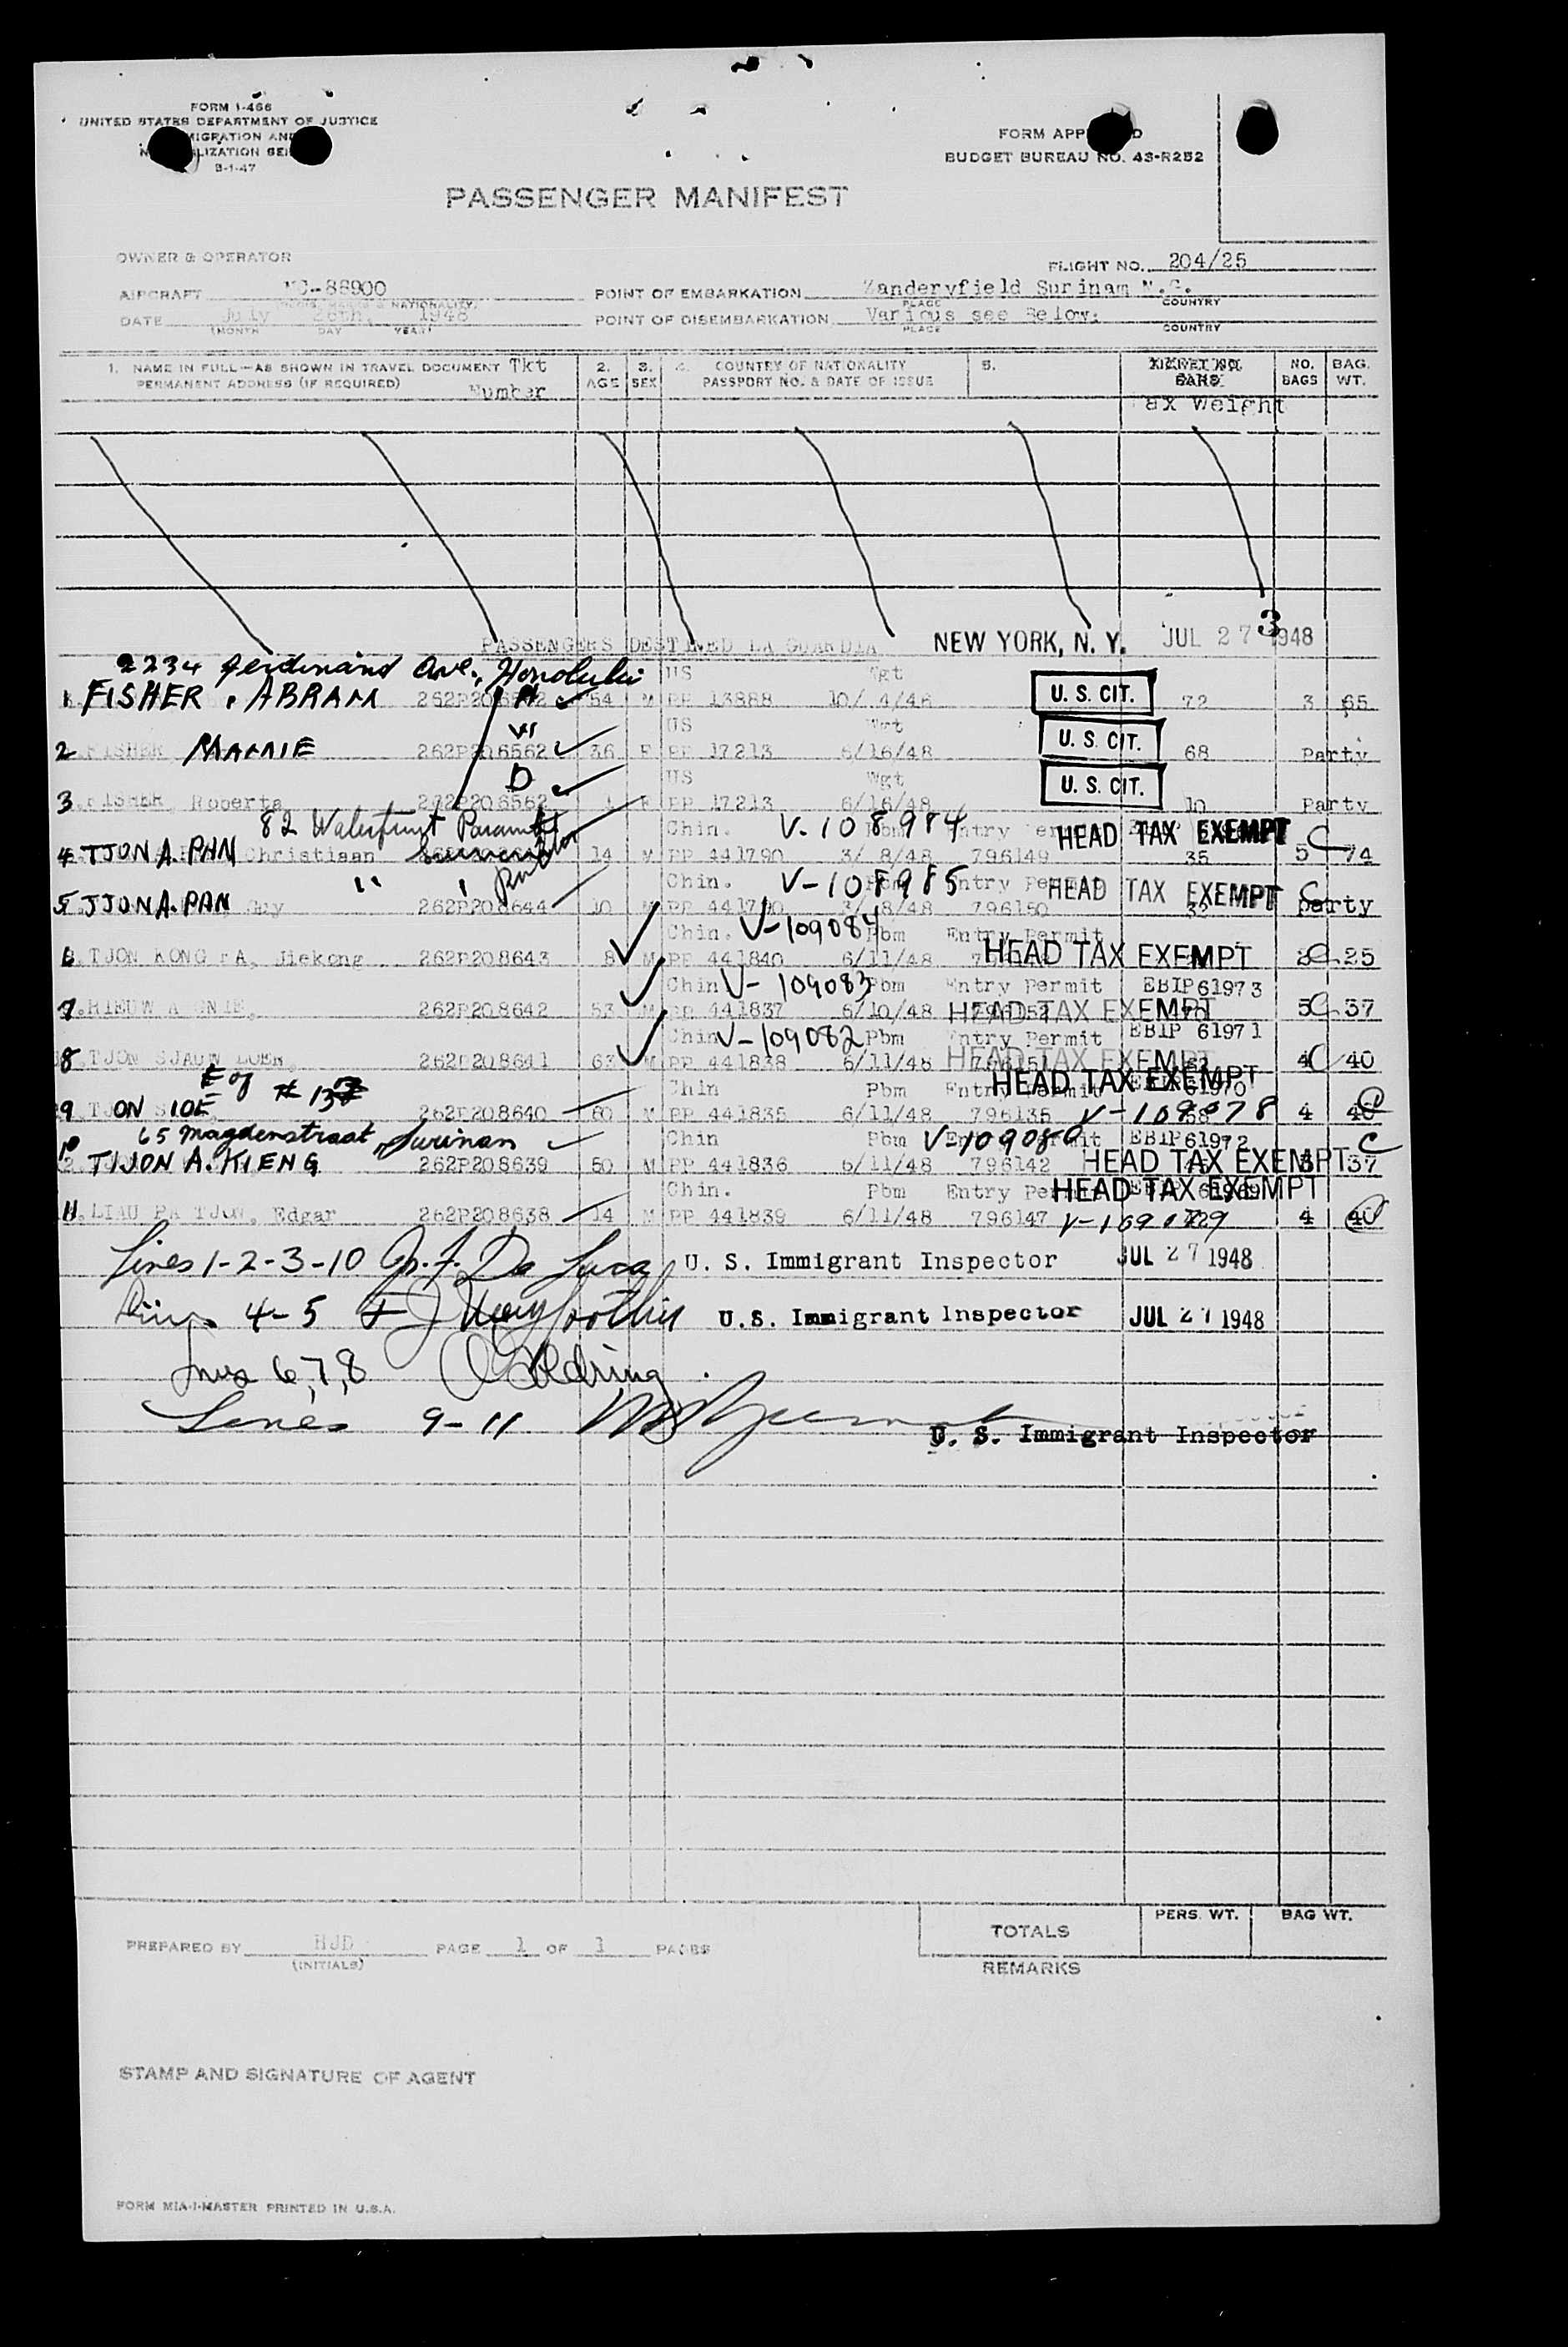 FORM I-466
UNITED STATES DEPARTMENT OF JUSTICE
MIGRATION AND
LIZATION SER
8-1-47
FORM APP D
BUDGET BUREAU NO. 43-R252
PASSENGER MANIFEST
OWNER & OPERATOR
FLIGHT NO. 204/25
AIRCRAFT NC-88900
POINT OF EMBARKATION Zanderyfield Surinam N.G.
PLACE COUNTRY
DATE July 26th, 1948
POINT OF DISEMBARKATION Various see Below:
(MONTH DAY YEAR)
PLACE COUNTRY
1. NAME IN FULL—AS SHOWN IN TRAVEL DOCUMENT Tkt
PERMANENT ADDRESS (IF REQUIRED) Number
2. AGE
3. SEX
4. COUNTRY OF NATIONALITY
PASSPORT NO. & DATE OF ISSUE
5.
ax Weight
NO. BAGS
BAG. WT.
3
PASSENGERS DESTINED LA GUARDIA NEW YORK, N. Y. JUL 27 1948
2234 Ferdinand Ave., Honolulu US Wgt
1. FISHER, ABRAM 54 M PP 13888 10/ 4/46 U. S. CIT. 72 3 65
W US Wgt
2. FISHER MAMIE 262P206562 36 F PP 17213 6/16/48 U. S. CIT. 68 Party
D US Wgt
3. FISHER, Roberta 262P206562 1 F PP 17213 6/16/48 U. S. CIT. 10 Party
82 Waterfront Chin. V-108984 Pbm Entry HEAD TAX EXEMPT C
4 TJON A. PAN Christiaan 14 M PP 441790 3/ 8/48 796149 35 5 74
" " Chin. V-108985 Pbm Entry Permit HEAD TAX EXEMPT C
5 TJON A. PAN, Guy 262P208644 10 M PP 441790 3/ 8/48 796150 32 Party
Chin. V-109084 Pbm Entry Permit
6. TJON KONG FA, Jiekong 262P208643 8 M PP 441840 6/11/48 HEAD TAX EXEMPT C 25
Chin V-109083 Pbm Entry Permit EBIP 61973
7. 262P208642 53 M PP 441837 6/10/48 796152 HEAD TAX EXEMPT 5 C 37
Chin V-109082 Pbm Entry Permit EBIP 61971
8 262P208641 63 M PP 441838 6/11/48 796151 HEAD TAX EXEMPT 4 C 40
Chin Pbm Entry Permit HEAD TAX EXEMPT 61970
9. TJON SIOE 262P208640 60 M PP 441835 6/11/48 796135 68 4 40 C
65 Magdenstraat, Surinam Chin Pbm V-109080 EBIP 61972 C
10 TIJON A. KIENG 262P208639 50 M PP 441836 6/11/48 796142 HEAD TAX EXEMPT 37
Chin. Pbm Entry Permit HEAD TAX EXEMPT 61969
11. LIAU PA TJON, Edgar 262P208638 14 M PP 441839 6/11/48 796147 4 40
Lines 1-2-3-10 U. S. Immigrant Inspector JUL 27 1948
4-5 U.S. Immigrant Inspector JUL 27 1948
Lines 6,7,8
Lines 9-11 U. S. Immigrant Inspector
PERS. WT. BAG WT.
TOTALS
PREPARED BY HJD PAGE 1 OF 1 PAGES
(INITIALS)
REMARKS
STAMP AND SIGNATURE OF AGENT
FORM MIA-I-MASTER PRINTED IN U.S.A.